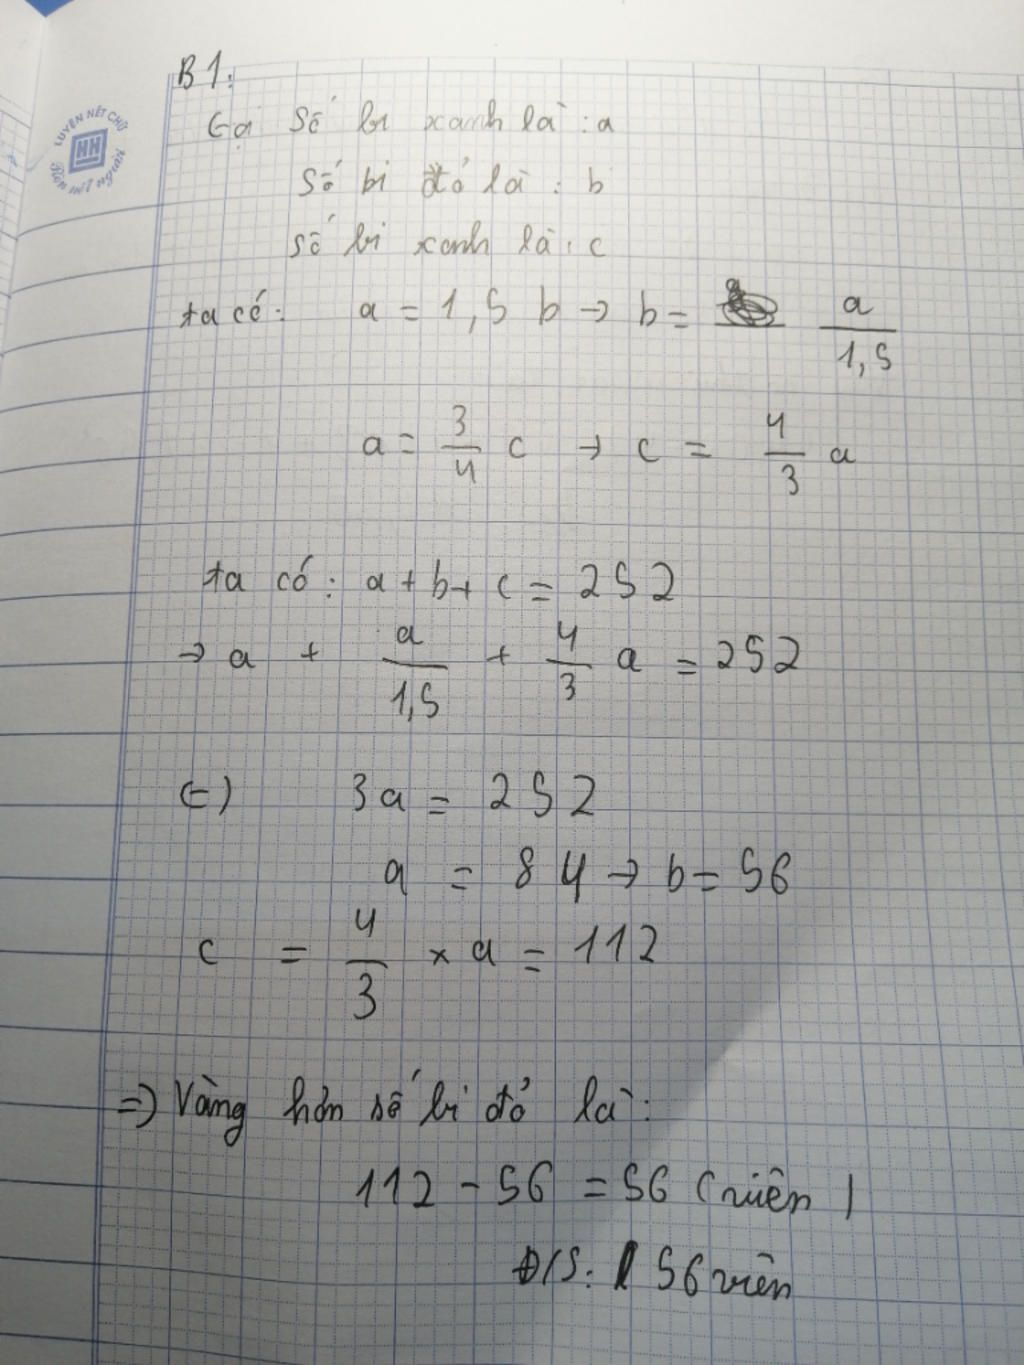 LUYỆN NÉT CHỮ
HH
Rèn nết người
B1:
Gọi Số bi xanh là: a
Số bi đỏ là: b
số bi xanh là: c
ta có: a = 1,5 b → b = a/1,5
a = 3/4 c → c = 4/3 a
ta có: a + b + c = 252
→ a + a/1,5 + 4/3 a = 252
(=) 3a = 252
a = 84 → b = 56
c = 4/3 × a = 112
=> Vàng hơn số bi đỏ là:
112 - 56 = 56 (viên)
Đ/S: 56 viên